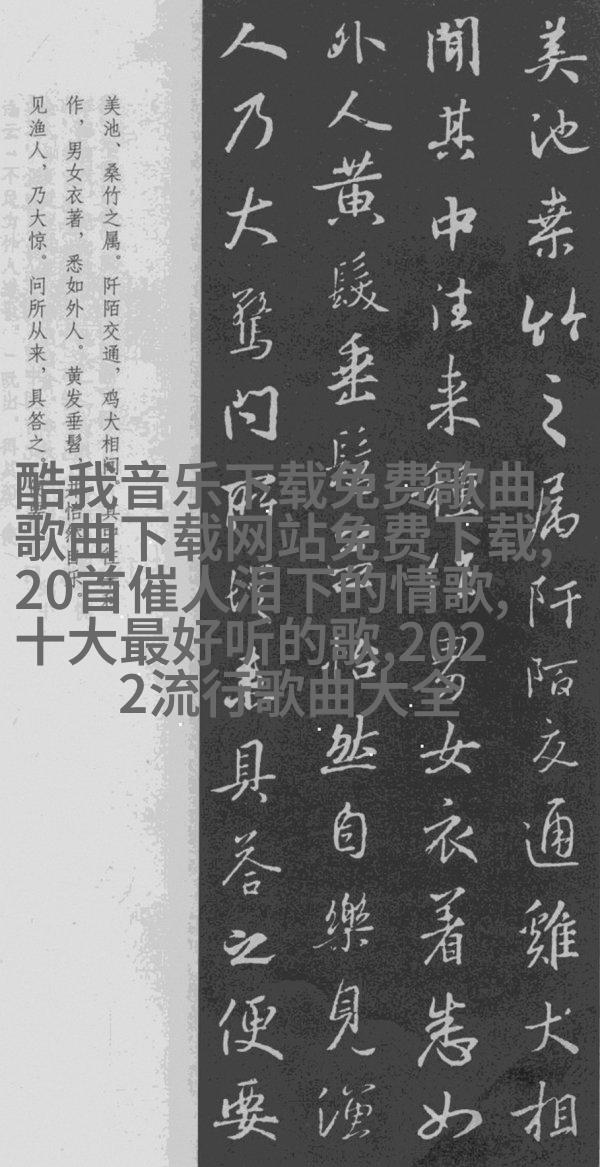 美池桒竹之属阡陌交通雞犬相
聞其中往来種作男女衣着悉如
外人黄髮垂髫怡然自樂見漁
人乃大驚問所從来具答之便要
美池、桑竹之属。阡陌交通，鸡犬相闻。其中往
作，男女衣著，悉如外人。黄发垂髫，并怡然自乐。
见渔人，乃大惊。问所从来，具答之。
酷我音乐下载免费歌曲,
歌曲下载网站免费下载,
20首催人泪下的情歌,
十大最好听的歌,202
2流行歌曲大全